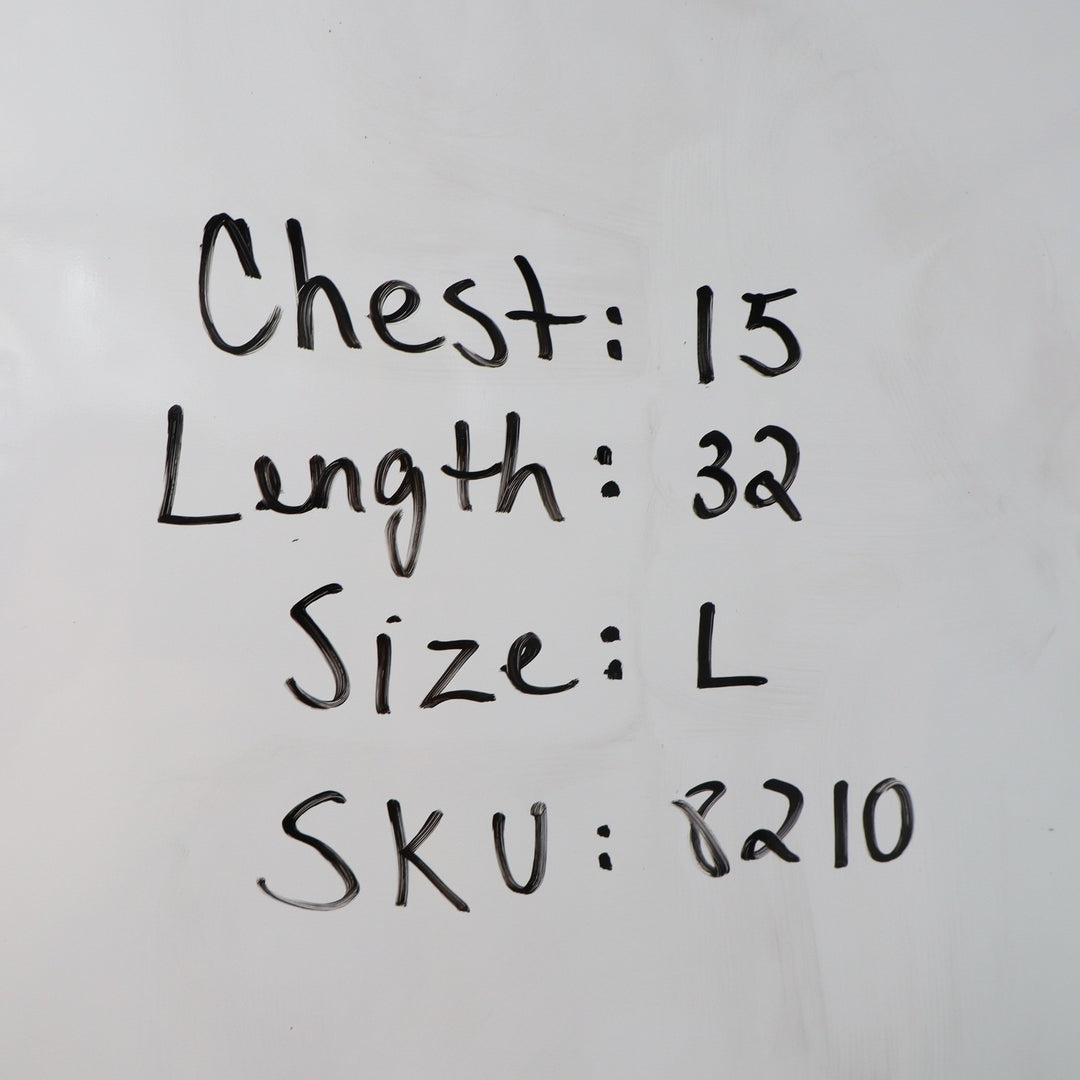 Chest: 15
Length: 32
Size: L
SKU: 8210